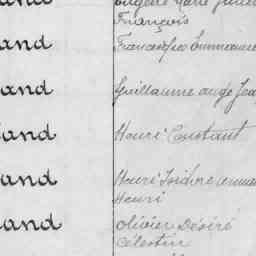 and
Eugène Marie
François
and
Françoise Emmanuel
and
Guillaume ange
and
Henri Constant
and
Henri Isidore
Henri
and
Olivier Désiré
Célestin